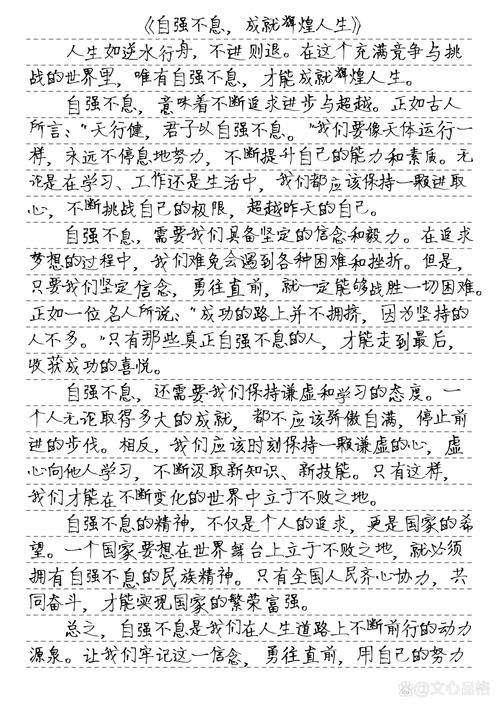 《自强不息，成就辉煌人生》
人生如逆水行舟，不进则退。在这个充满竞争与挑
战的世界里，唯有自强不息，才能成就辉煌人生。
自强不息，意味着不断追求进步与超越。正如古人
所言："天行健，君子以自强不息。"我们要像天体运行一
样，永远不停息地努力，不断提升自己的能力和素质。无
论是在学习、工作还是生活中，我们都应该保持一颗进取
心，不断挑战自己的极限，超越昨天的自己。
自强不息，需要我们具备坚定的信念和毅力。在追求
梦想的过程中，我们难免会遇到各种困难和挫折。但是，
只要我们坚定信念，勇往直前，就一定能够战胜一切困难。
正如一位名人所说："成功的路上并不拥挤，因为坚持的
人不多。"只有那些真正自强不息的人，才能走到最后，
收获成功的喜悦。
自强不息，还需要我们保持谦虚和学习的态度。一
个人无论取得多大的成就，都不应该骄傲自满，停止前
进的步伐。相反，我们应该时刻保持一颗谦虚的心，虚
心向他人学习，不断汲取新知识、新技能。只有这样，
我们才能在不断变化的世界中立于不败之地。
自强不息的精神，不仅是个人的追求，更是国家的希
望。一个国家要想在世界舞台上立于不败之地，就必须
拥有自强不息的民族精神。只有全国人民齐心协力，共
同奋斗，才能实现国家的繁荣富强。
总之，自强不息是我们在人生道路上不断前行的动力
源泉。让我们牢记这一信念，勇往直前，用自己的努力
@文心品格